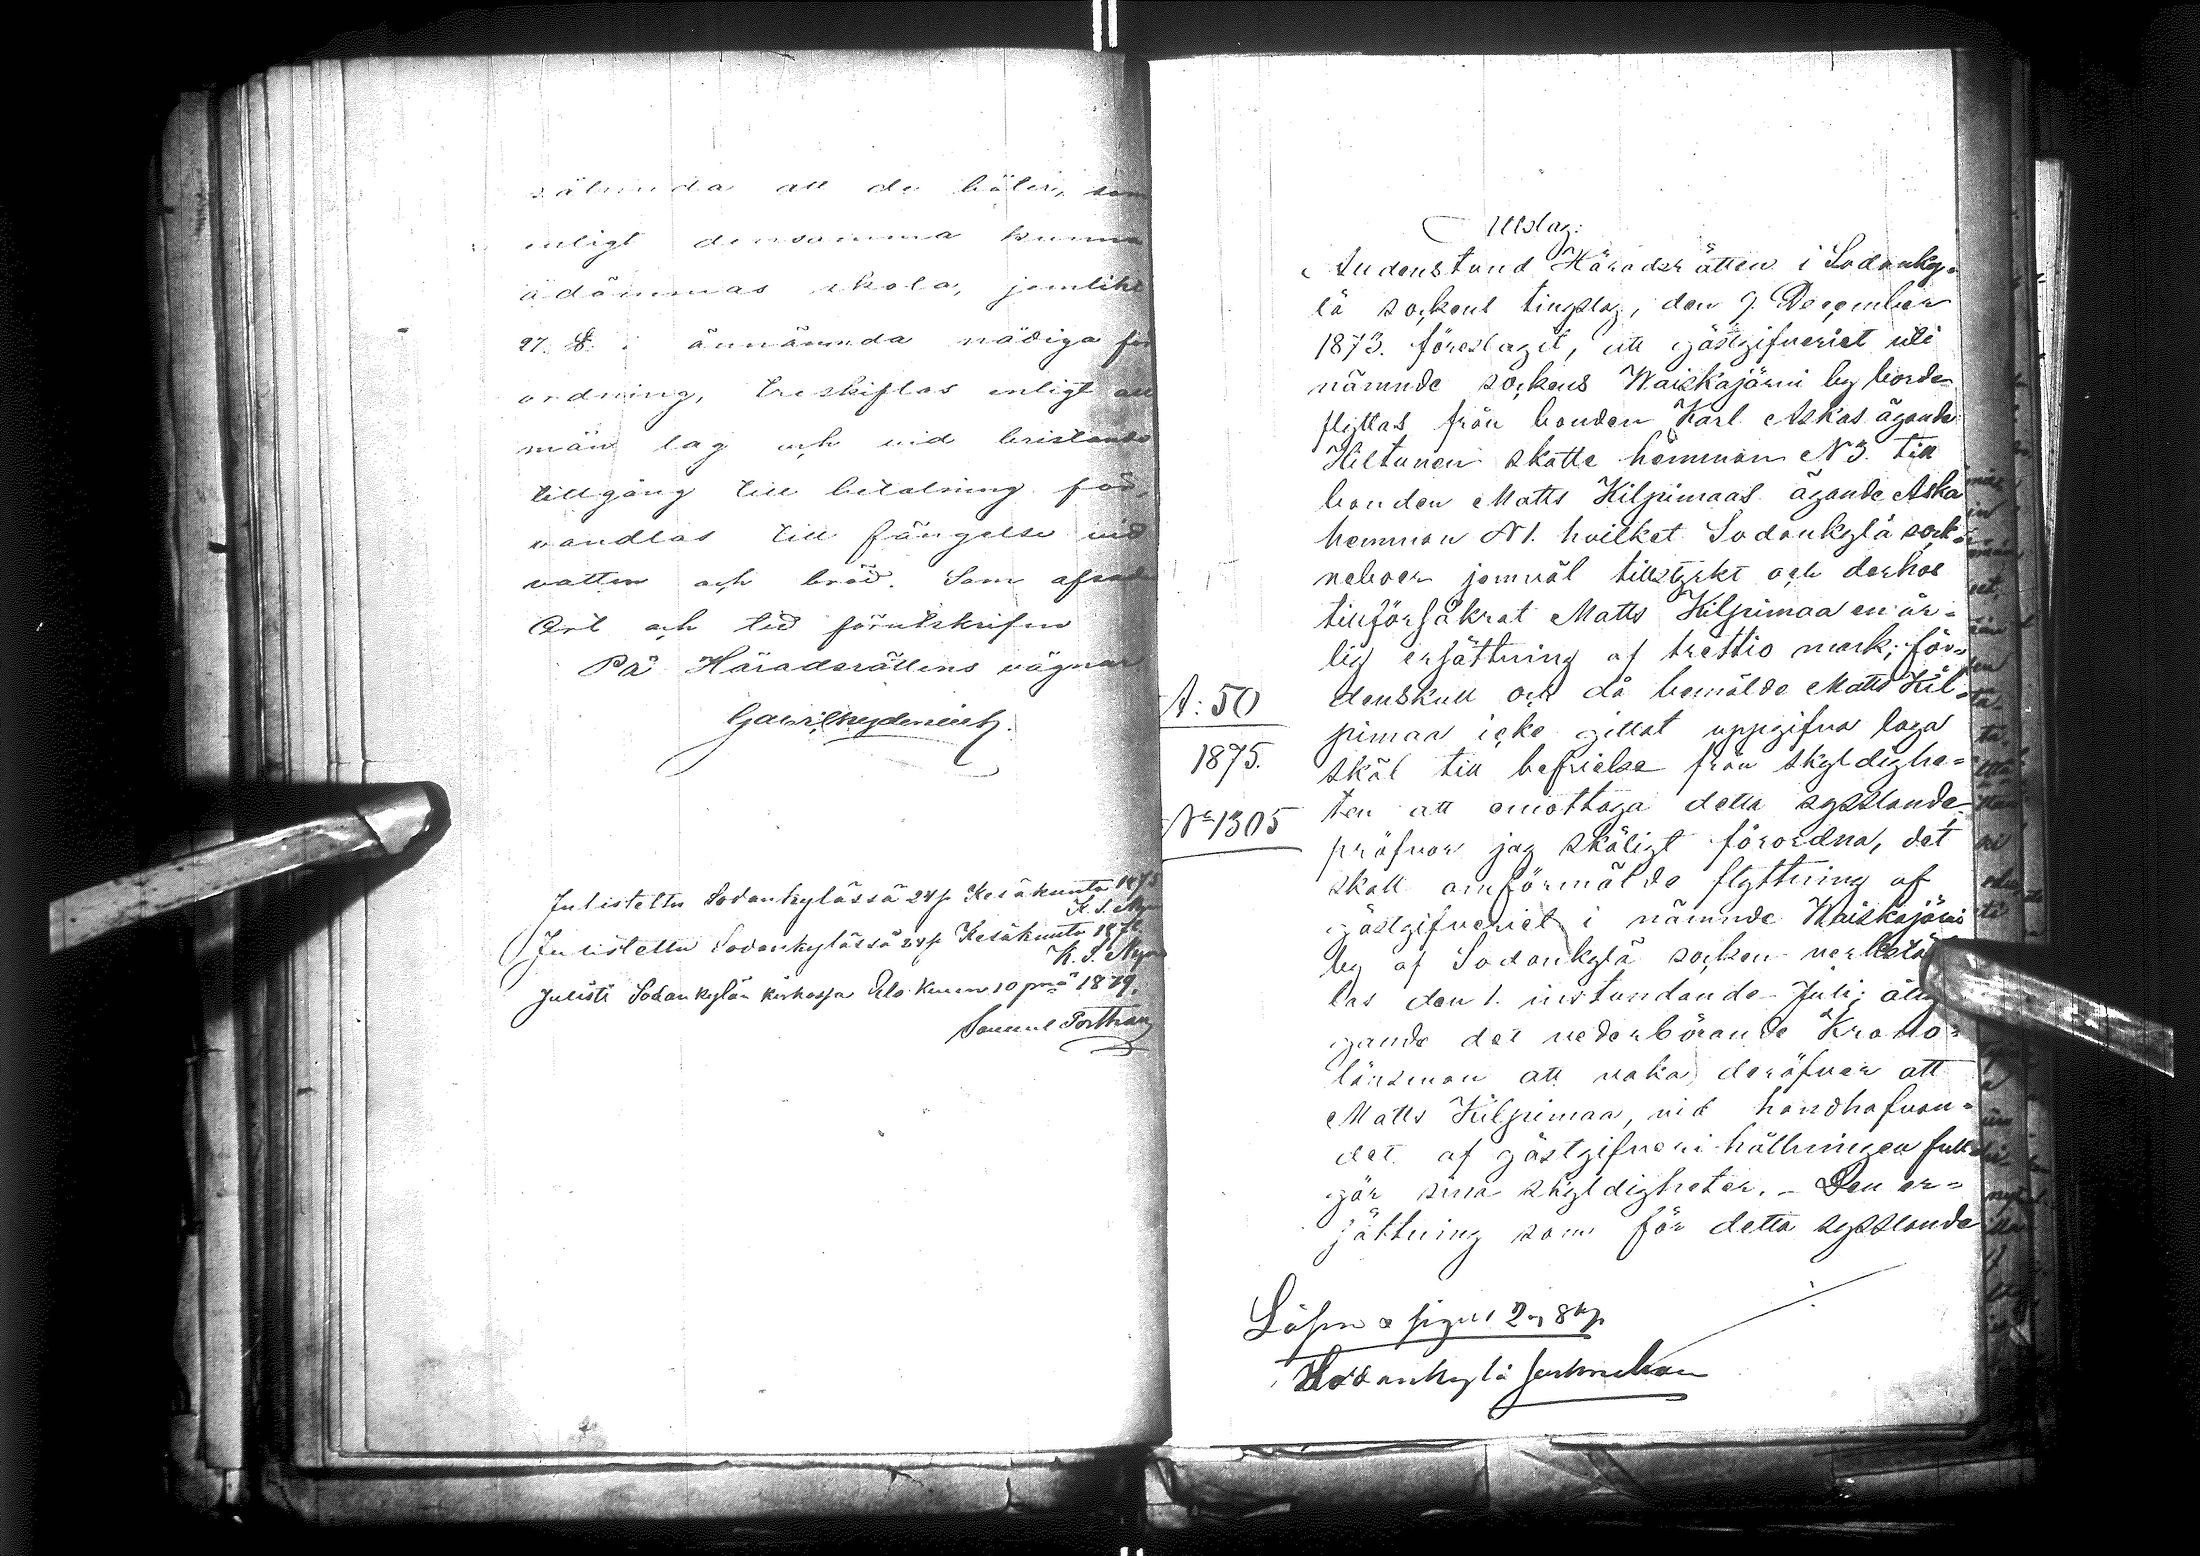 sålunda att de böter, som
enligt densamma kunna
ådömmas skola, jemlikt
27. §. i ännämnda nådiga för
ordning, treskiftas enligt all
män lag och vid bristande
tillgång till betalning för,
vandlas till fängelse vid
vatten och bröd. Som ofvan
Ort och tid förutskrifne
På Häradsrättens vägnar
Julistettu Sodankylässä 24 p Kesäkuuta 1875
K. S.
Julistettu Sodankylässä 24 p Kesäkuuta 18
K. S.
Julisti Sodankylän kirkossa Elo Kuun 10 pnä 1879.
Samuel
Utslag:
Sedenstund Häradsrätten i Sodanky-
lä sockens tingslag, den 9. December
1873. föreslagit, att gästgifveriet uti
nämnde sockens Waiskajärvi by borde
flyttas från bonden Karl Askas ägande
Hiltunen skatte hemman N 3. till
bonden Matts Kilpimaas ägande Aska
hemman N 1. hvilket Sodankylä sock-
neboer jemväl tillstyrkt och derhos
tillförsäkrat Matts Kilpimaa en år-
lig ersättning af trettio mark; för-
denskull och då bemälde Matts Kil-
pimaa icke gittat uppgifva laga
skäl till befrielse från skyldighe-
ten att emottaga detta sysslande
pröfvar jag skäligt förordna, det
skall omförmälde flyttning af
gästgifveriet i nämnde Waiskajärvi
by af Sodankylä socken verkstäl
las den 1. instundande Juli; ålig
gande det vederbörande Krono-
länsman att vaka deröfver att
Matts Kilpimaa, vid handhafvan-
det af gästgifveri hållningen full
gör sina skyldigheter. - Den er-
sättning som för detta sysslande
A: 50
1875.
No 1305
Sodankylä